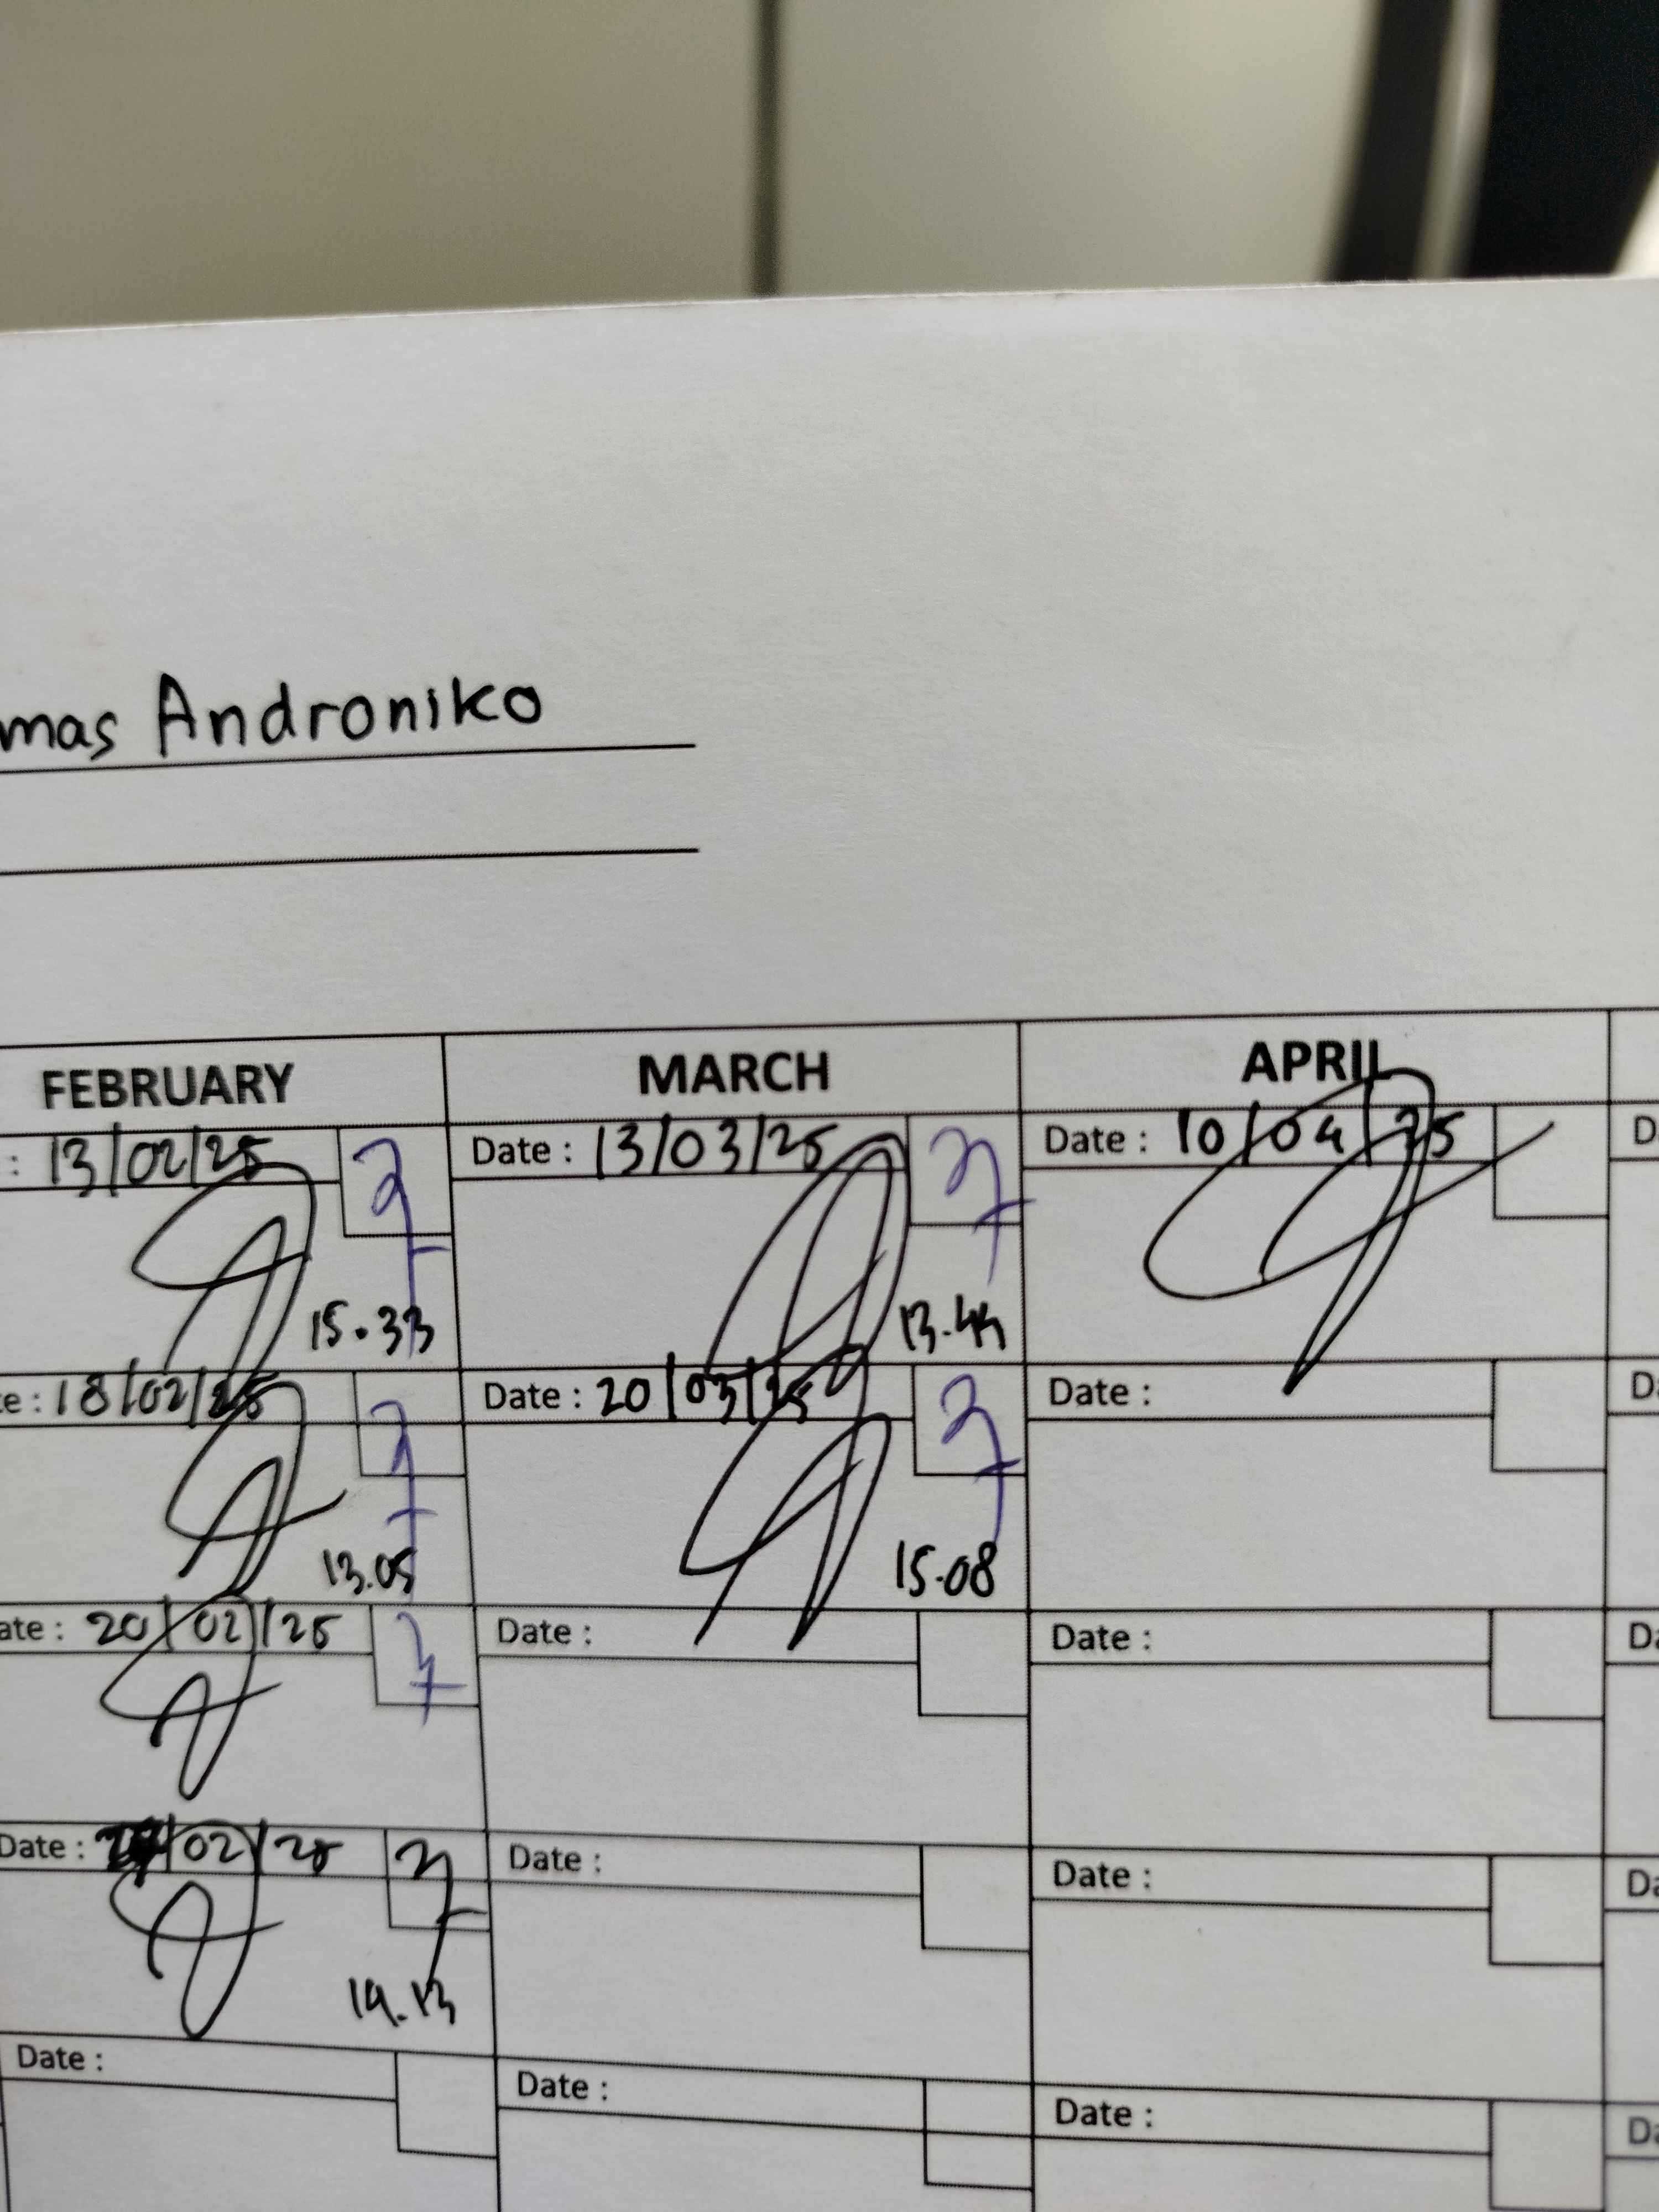 mas Androniko
FEBRUARY MARCH APRIL
: 13/02/25 Date : 13/03/25 Date : 10/04/25 D
15.33 13.44
te : 18/02/25 Date : 20/03/25 Date : Da
13.05 15.08
ate : 20/02/25 Date : Date : Da
Date : /02/25 Date : Date : Da
14.13
Date : Date : Date : Da